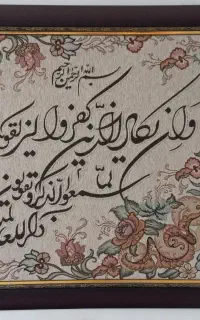 بسم الله الرحمن الرحيم
وان يكاد الذين كفروا ليزلقو
لما سمعوا الذكر و يقولو